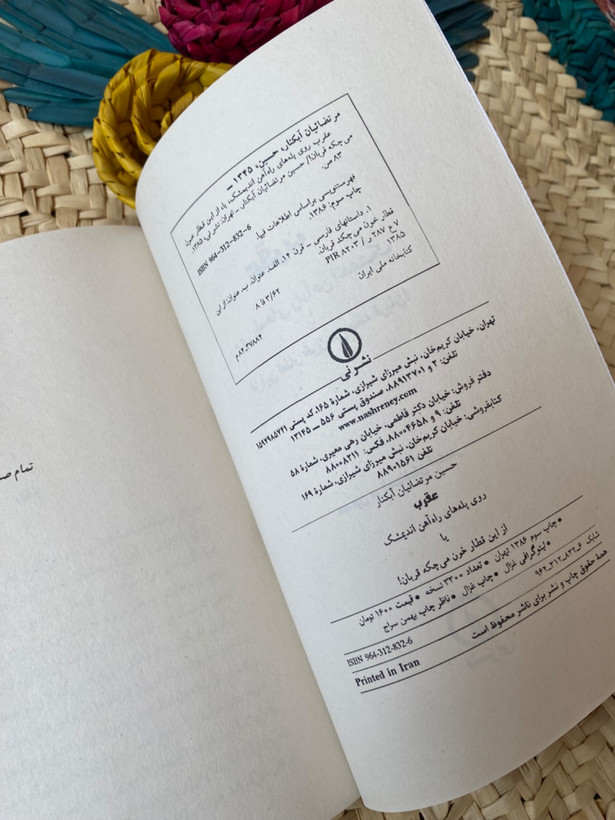 مرتضائیان آبکنار، حسین، ۱۳۴۵ ـ
عقرب روی پله‌های راه‌آهن اندیمشک، یا، از این قطار خون
می‌چکه قربان!/ حسین مرتضائیان آبکنار. ـ تهران: نشرنی، ۱۳۸۵.
۸۳ ص.
ISBN 964-312-832-6
فهرستنویسی براساس اطلاعات فیپا.
چاپ سوم: ۱۳۸۶.
۱. داستانهای فارسی ـ قرن ۱۴. الف. عنوان. ب. عنوان: از این
قطار خون می‌چکد قربان.
PIR ۸۲۰۳ / ر ۲۸۷ ع ۷
۱۳۸۵
۸ فا ۳/۶۲
کتابخانه ملی ایران
نشرنی
تهران، خیابان کریم‌خان، نبش میرزای شیرازی، شمارهٔ ۱۶۵، کد پستی ۱۵۹۷۹۸۵۷۴۱
تلفن: ۲ و ۸۸۹۱۳۷۰۱، صندوق پستی ۵۵۶ ــ ۱۳۱۴۵
www.nashreney.com
دفتر فروش: خیابان دکتر فاطمی، خیابان رهی معیری، شمارهٔ ۵۸
تلفن: ۹ و ۸۸۰۰۴۶۵۸، فکس: ۸۸۰۰۸۲۱۱
کتابفروشی: خیابان کریم‌خان، نبش میرزای شیرازی، شمارهٔ ۱۶۹
تلفن ۸۸۹۰۱۵۶۱
حسین مرتضائیان آبکنار
عقرب
روی پله‌های راه‌آهن اندیمشک
یا
از این قطار خون می‌چکه قربان!
• چاپ سوم ۱۳۸۶ تهران • تعداد ۳۳۰۰ نسخه • قیمت ۱۶۰۰ تومان
• لیتوگرافی غزال • چاپ غزال • ناظر چاپ بهمن سراج
شابک ۶_۸۳۲_۳۱۲_۹۶۴
همهٔ حقوق چاپ و نشر برای ناشر محفوظ است
ISBN 964-312-832-6
Printed in Iran
تمام